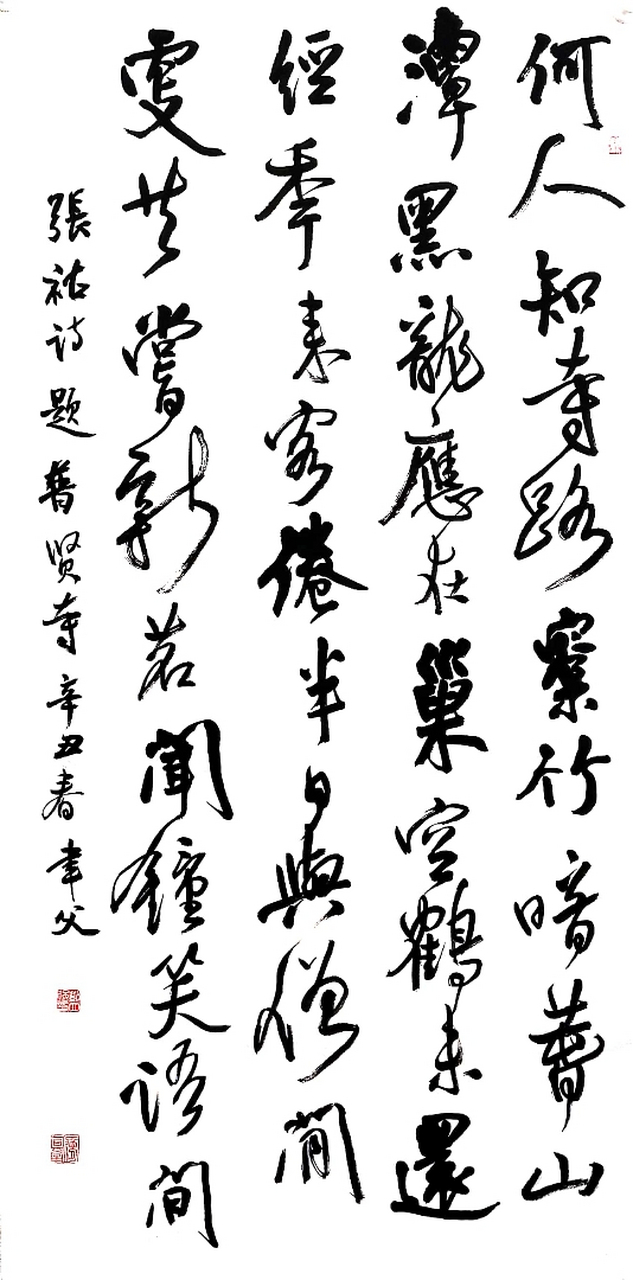 何人知寺路㮤竹暗萅山
潭黑龍應在巢空鶴未還
經秊来客倦半日與僧閒
更共嘗新茗聞鐘笑語間
張祜诗题普贤寺辛丑春聿父